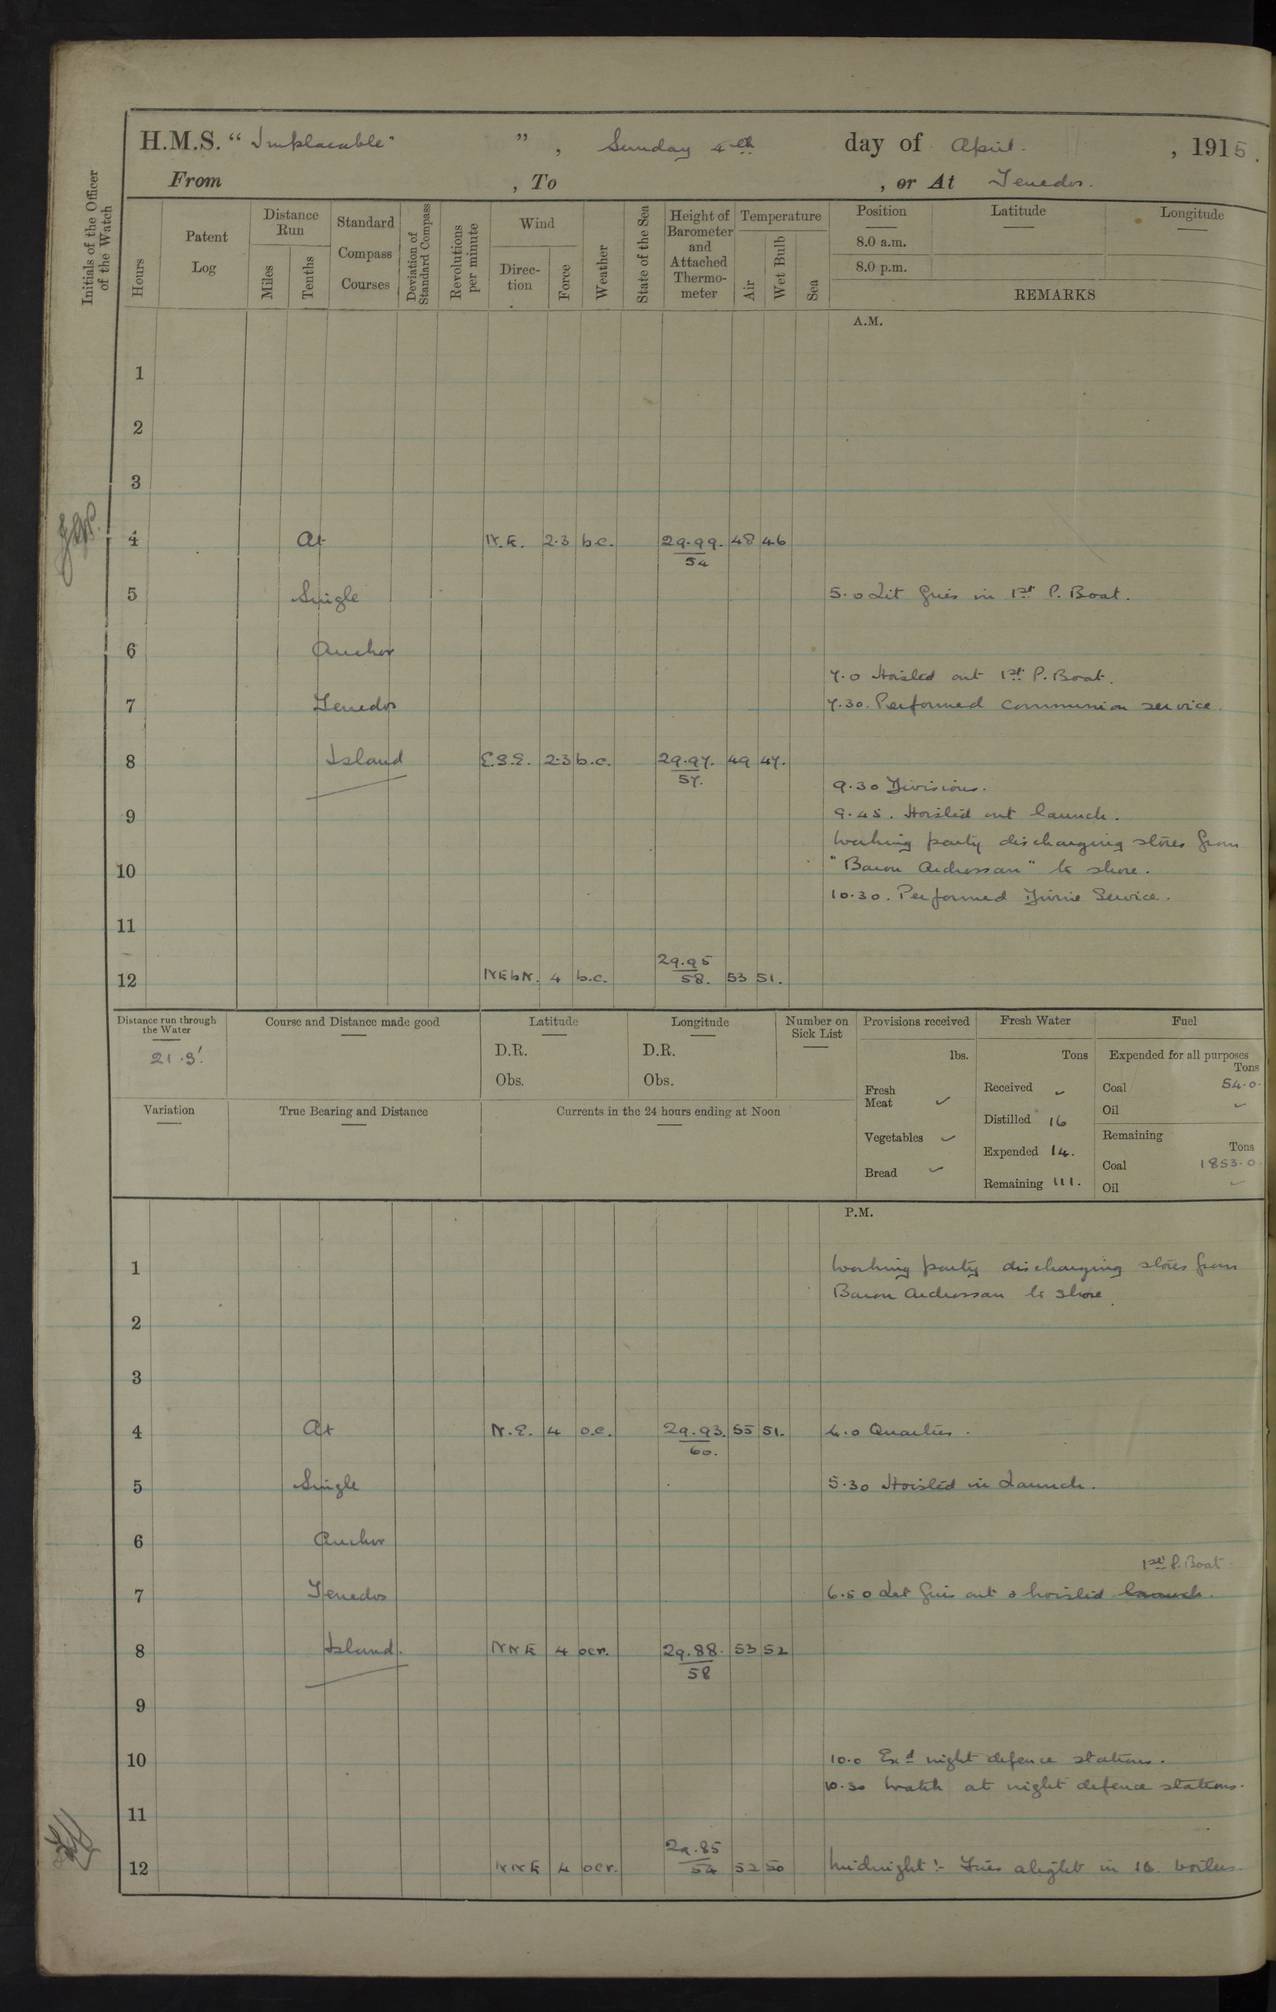 H.M.S. “Implacable” ” , Sunday 4th day of April. , 1915.
From , To , or At Tenedos.
Initials of the Officer of the Watch
Hours
Patent Log
Distance Run
Miles
Tenths
Standard Compass Courses
Deviation of Standard Compass
Revolutions per minute
Wind
Direction
Force
Weather
State of the Sea
Height of Barometer and Attached Thermometer
Temperature
Air
Wet Bulb
Sea
Position Latitude Longitude
8.0 a.m.
8.0 p.m.
REMARKS
A.M.
1
2
3
4 At N.E. 2.3 b.c. 29.99. 48 46
54
5 Single 5.0 Lit fires in 1st P. Boat.
6 Anchor
7.0 Hoisted out 1st P. Boat.
7 Tenedos 7.30. Performed Communion service.
8 Island E.S.E. 2.3 b.c. 29.97. 49 47.
57.
9.30 Divisions.
9 9.45. Hoisted out launch.
Working party discharging stores from
10 "Baron Ardrossan" to shore.
10.30. Performed Divine Service.
11
29.95
12 NEbN. 4 b.c. 58. 53 51.
Distance run through the Water
21.3'.
Course and Distance made good
Latitude
D.R.
Obs.
Longitude
D.R.
Obs.
Number on Sick List
Provisions received
lbs.
Fresh Meat ✓
Vegetables ✓
Bread ✓
Fresh Water
Tons
Received ✓
Distilled 16
Expended 14.
Remaining 111.
Fuel
Expended for all purposes
Tons
Coal 54.0.
Oil ✓
Remaining
Tons
Coal 1853.0.
Oil ✓
Variation
True Bearing and Distance
Currents in the 24 hours ending at Noon
P.M.
1 Working party discharging stores from
Baron Ardrossan to shore.
2
3
4 At N.E. 4 o.c. 29.93. 55 51. 4.0 Quarters.
60.
5 Single 5.30 Hoisted in Launch.
6 Anchor
1st P. Boat
7 Tenedos 6.50 Let fires out & hoisted launch.
8 Island. NNE 4 ocr. 29.88. 53 52
58
9
10 10.0 Exd night defence stations.
10.30 Watch at night defence stations.
11
29.85
12 NNE 4 ocr. 54 52 50 Midnight:- Fires alight in 16 boilers.